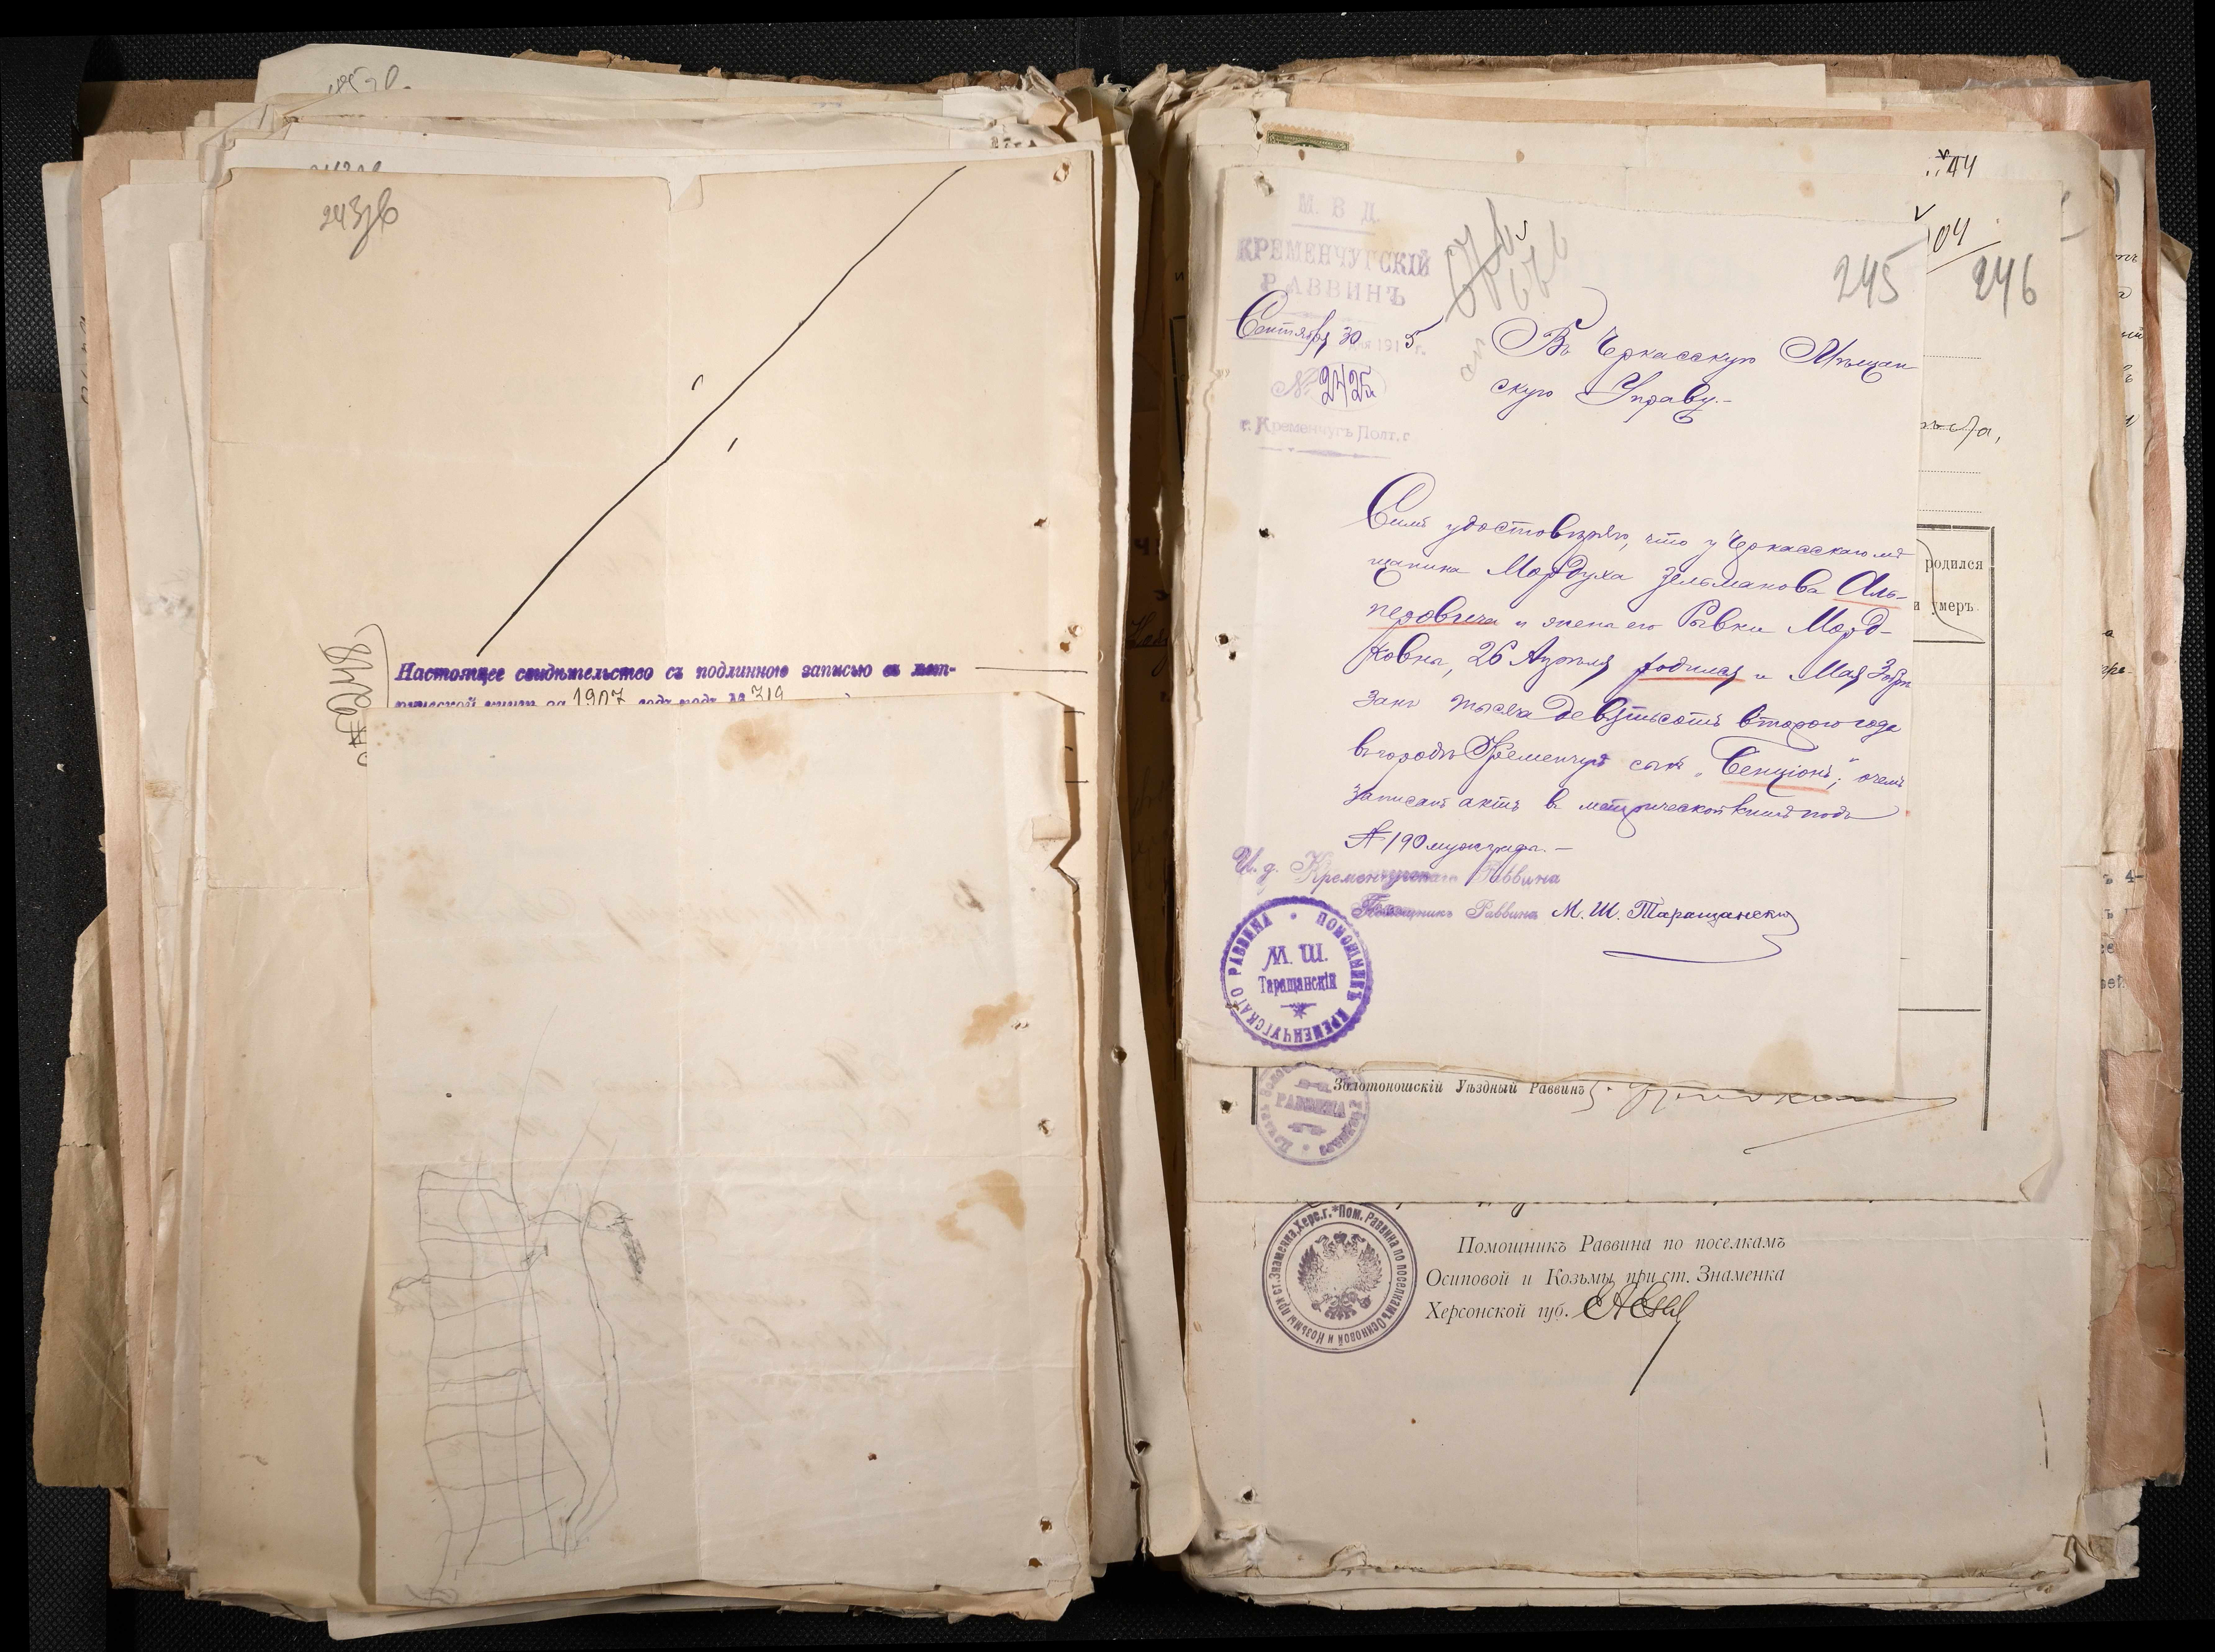 243об
Настоящее свидѣтельство съ подлинною записью въ мет-
рической книгѣ за 1907 годъ подъ № 719
44
М. В. Д.
КРЕМЕНЧУГСКІЙ
РАВВИНЪ
Сентября 30 дня 1915 г.
№ 2425
г. Кременчугъ Полт. г.
245
04
246
Въ Черкасскую Мѣщан
скую Управу.-
Симъ удостовѣряю, что у Черкасскаго мѣ
щанина Мордуха Зельманова Аль-
перовича и жены его Рывки Морд-
ковны, 26 Апрѣля родился и Мая 3 обрѣ
занъ тысяча девятьсотъ второго года
въ городѣ Кременчугѣ сынъ „Бенціонъ;" о чемъ
записанъ актъ въ метрической книгѣ подъ
№ 190 муж. графы.-
И. д. Кременчугскаго Раввина
Помощникъ Раввина М. Ш. Таращанскій
ПОМОЩНИКЪ КРЕМЕНЧУГСКАГО РАВВИНА
М. Ш.
Таращанскій
родился
и умеръ.
Золотоношскій Уѣздный Раввинъ
РАВВИНА
Пом. Раввина по поселкамъ Осиповой и Козьмы при ст. Знаменка, Херс. г.
Помощникъ Раввина по поселкамъ
Осиповой и Козьмы при ст. Знаменка
Херсонской губ.